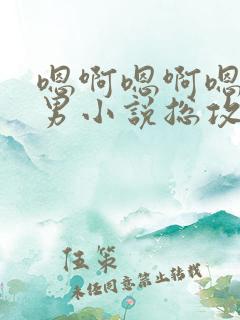 嗯啊嗯啊嗯
男小说总攻
伍策
未经同意禁止转载